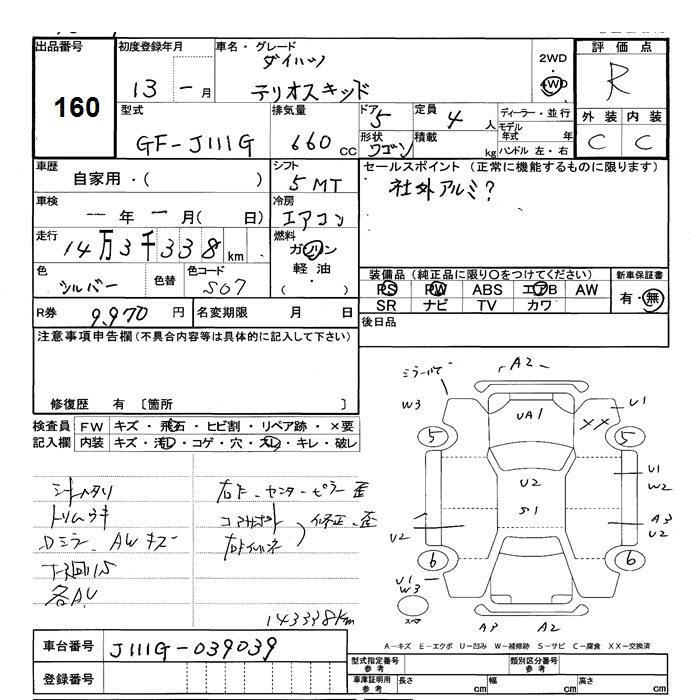 出品番号
160
初度登録年月
13 - 月
車名・グレード
ダイハツ
テリオスキッド
2WD
4WD
評価点
R
型式
GF-J111G
排気量
660 cc
ドア
5
形状
ワゴン
定員
4 人
積載
kg
ディーラー・並行
モデル年式 年
ハンドル 左・右
外装 内装
C C
車歴
自家用・( )
シフト
5MT
セールスポイント(正常に機能するものに限ります)
社外アルミ?
車検
- 年 - 月( 日)
冷房
エアコン
走行
14万3千338km
燃料
ガソリン
軽油
( ・ )
色
シルバー
色替
色コード
S07
装備品(純正品に限り○をつけてください)
PS PW ABS エアB AW
SR ナビ TV カワ
新車保証書
有・無
R券 9,970 円
名変期限 月 日
後日品
注意事項申告欄(不具合内容等は具体的に記入して下さい)
修復歴 有 〔箇所 〕
検査員記入欄
FW キズ・飛石・ヒビ割・リペア跡・×要
内装 キズ・汚れ・コゲ・穴・スレ・キレ・破レ
シートヘタリ
トリムウキ
Dミラー、AWキズ
下廻りS
各A.U
右F、センターピラー歪
コアサポート
右Fインネ
修正、歪
143338km
ミラーキズ
A2
W3
UA1
XX
U1
5
5
U2
S1
U1
W2
A3
U2
U2
6
6
U1
W3
スペア
A3 A2
A-キズ E-エクボ U-凹み W-補修跡 S-サビ C-腐食 XX-交換済
車台番号 J111G-039039
登録番号
型式指定番号
参考
類別区分番号
参考
車庫証明用
参考
長さ cm 幅 cm 高さ cm